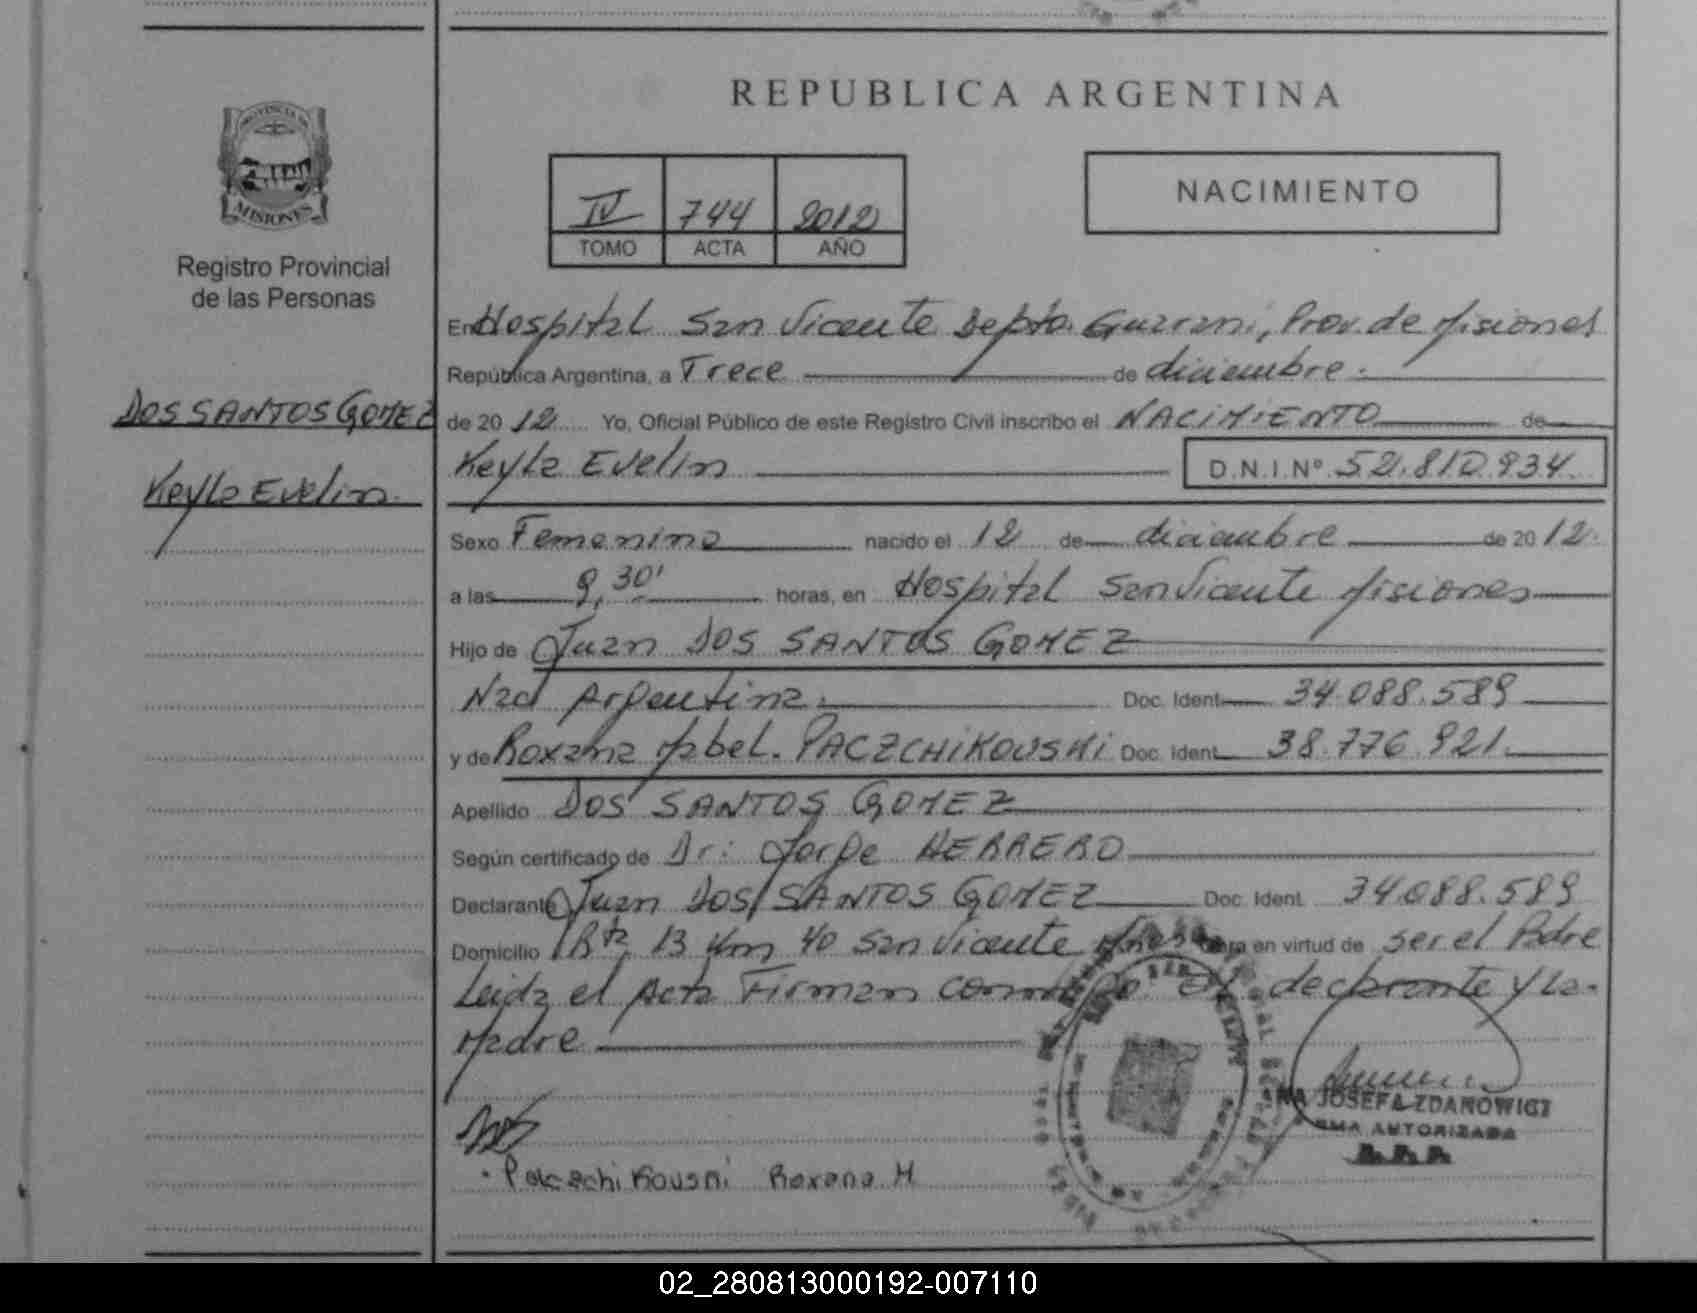 REPUBLICA ARGENTINA
PROVINCIA DE
MISIONES
Registro Provincial
de las Personas
IV 744 2012
TOMO ACTA AÑO
NACIMIENTO
DOS SANTOS GOMEZ
Keyla Evelin.
En Hospital San Vicente Depto. Guarani, Prov. de Misiones
República Argentina, a Trece de diciembre.
de 2012 Yo, Oficial Público de este Registro Civil inscribo el NACIMIENTO de
Keyla Evelin D.N.I.Nº 52.810.934
Sexo Femenino nacido el 12 de diciembre de 2012.
a las 9,30' horas, en Hospital San Vicente Misiones
Hijo de Juan DOS SANTOS GOMEZ
Nac Argentina. Doc. Ident 34.088.589
y de Roxana Mabel. PACZCHIKOUSKI Doc. Ident 38.776.921.
Apellido DOS SANTOS GOMEZ
Según certificado de Dr: Jorge HERRERO
Declarante Juan DOS SANTOS GOMEZ Doc. Ident. 34.088.589
Domicilio Rta 13 Km 40 San Vicente Mnes. obra en virtud de ser el Padre
Leida el Acta Firman conmigo El declarante y la
Madre
JOSEFA ZDANOWICZ
AUTORIZADA
Paczchikouski Roxana M
02_280813000192-007110